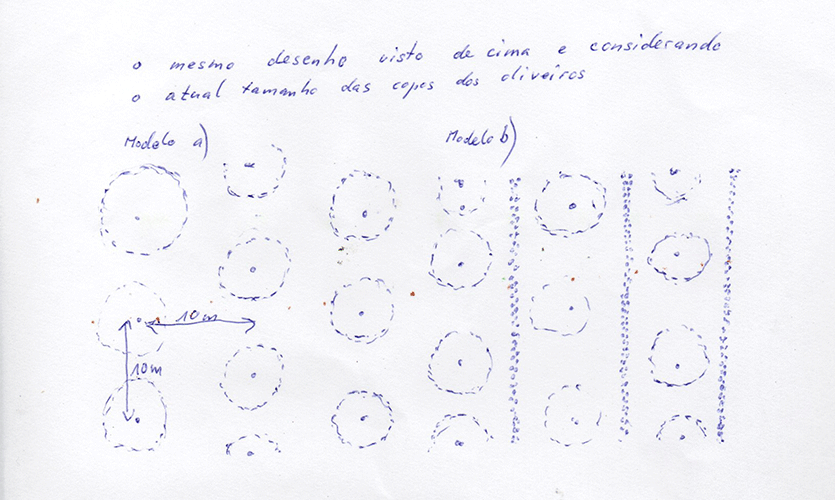 o mesmo desenho visto de cima e considerando
o atual tamanho das copas dos oliveiros
Modelo a)
Modelo b)
10m
10m